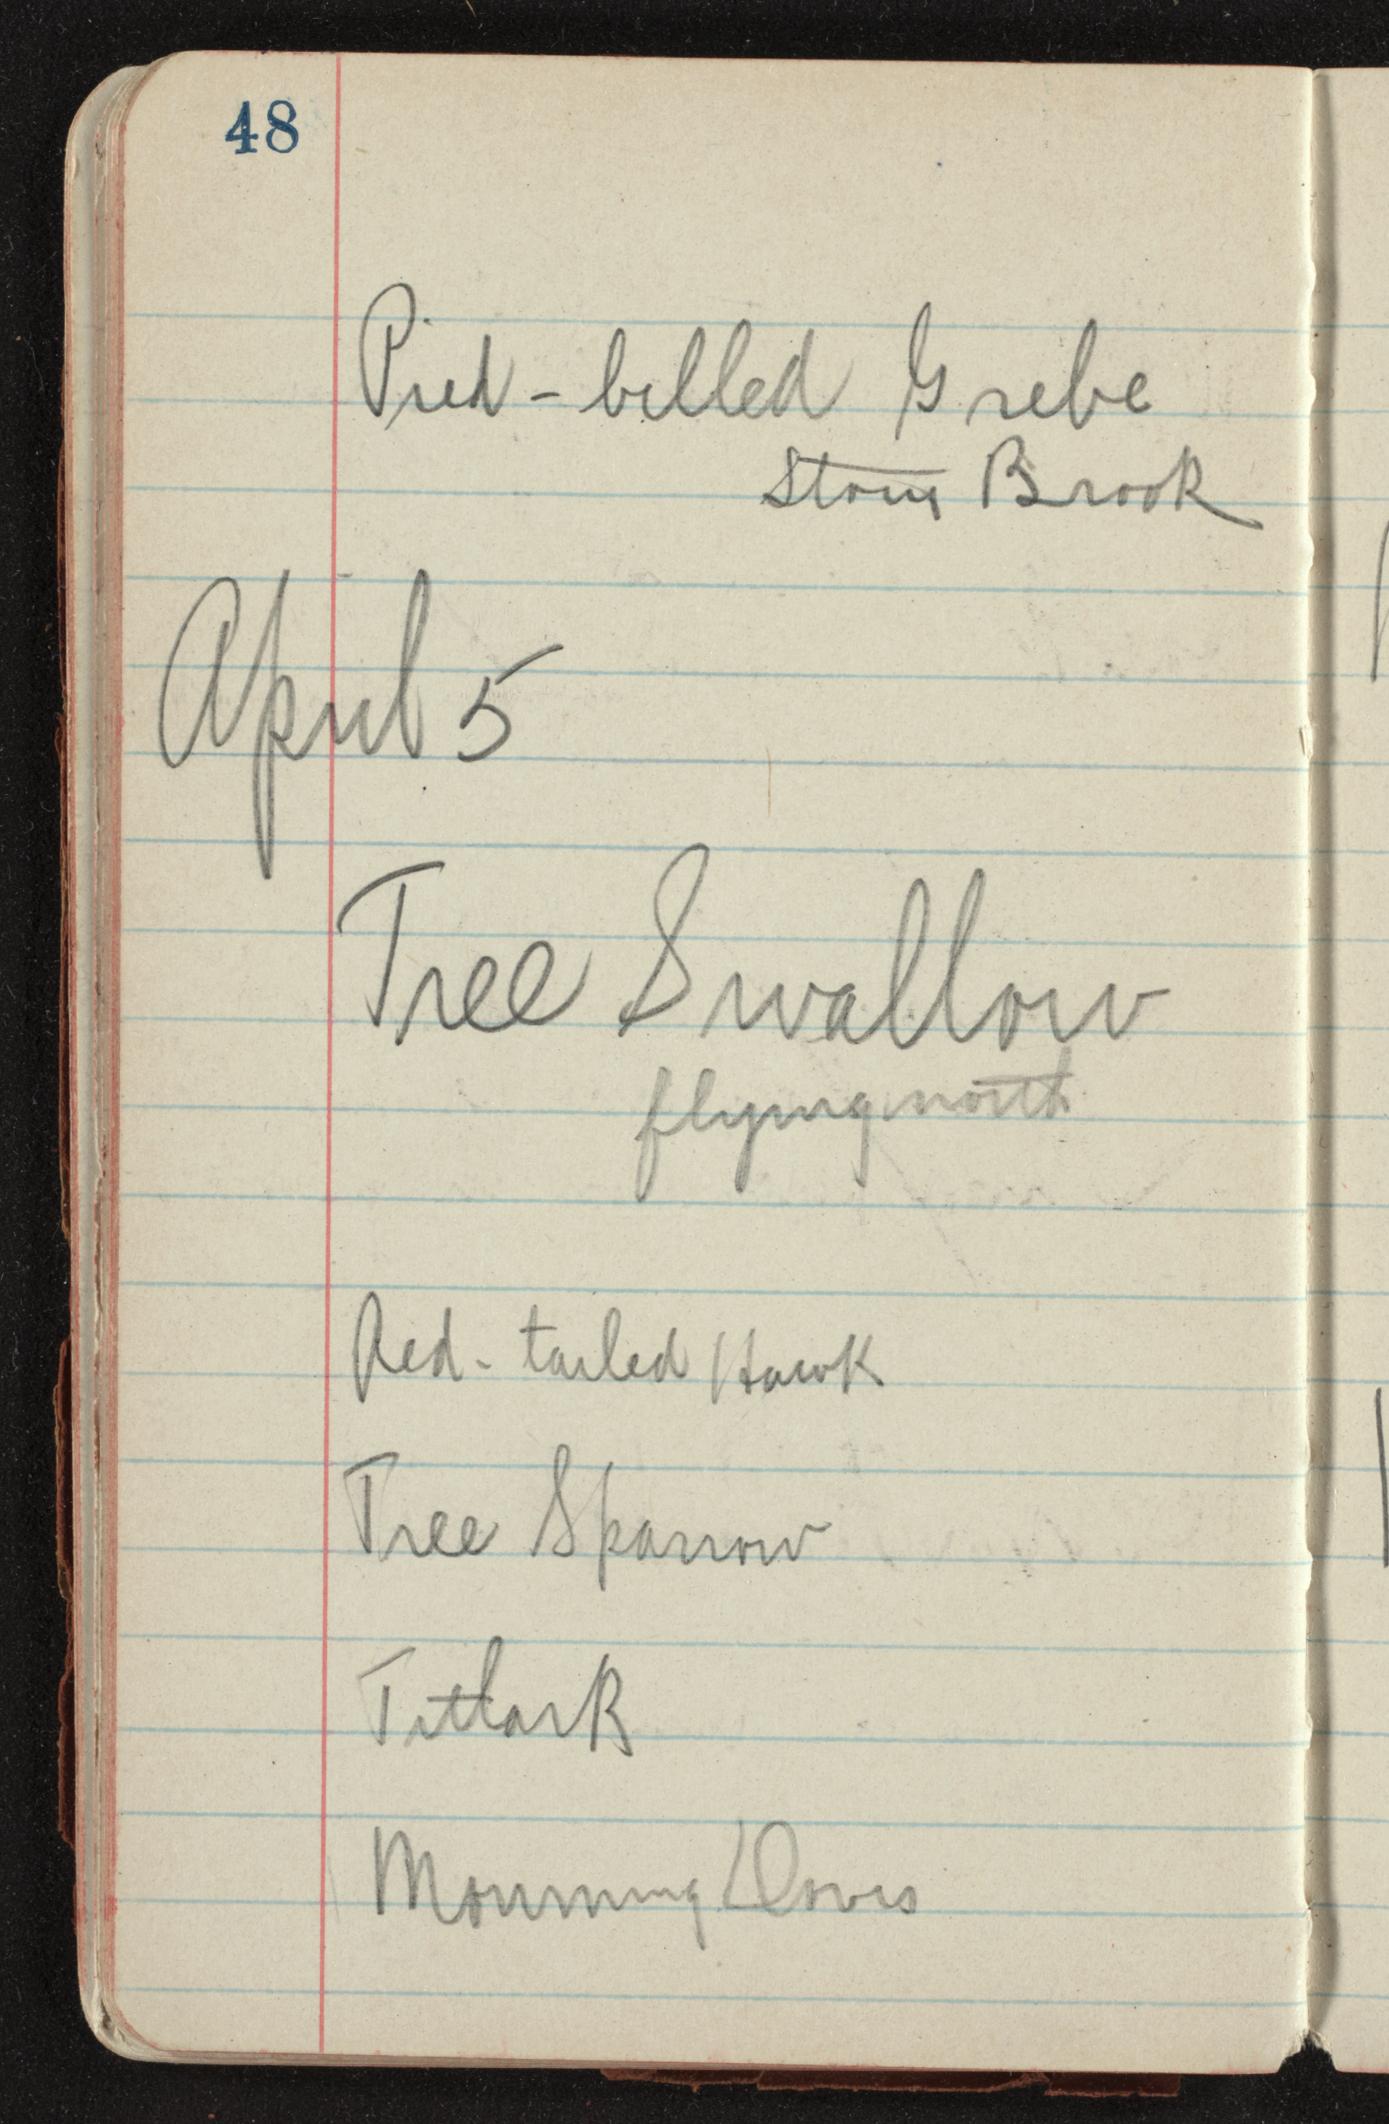 48
Pied-billed Grebe
Stony Brook
April 5
Tree Swallow
flying north
Red-tailed Hawk
Tree Sparrow
Titlark
Mourning Doves